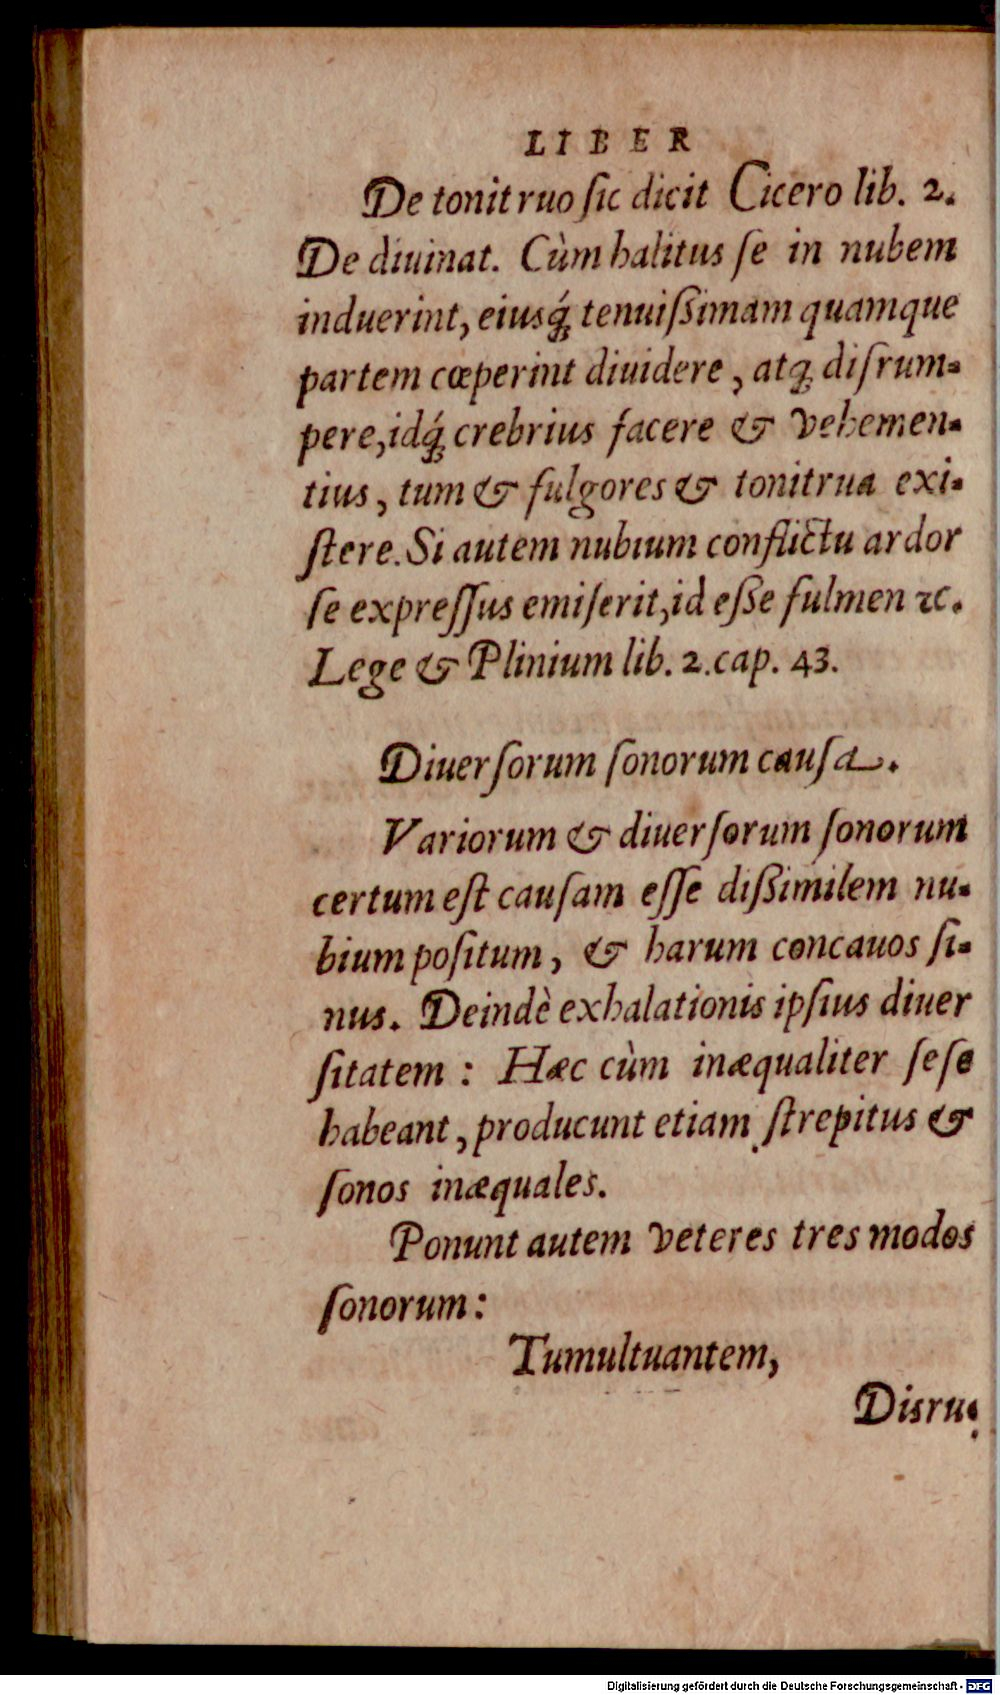 LIBER
De tonitruo ſic dicit Cicero lib. 2.
De diuinat. Cùm halitus ſe in nubem
induerint, eiusq́; tenuiſsimam quamque
partem cœperint diuidere, atq; diſrum-
pere, idq́; crebrius facere & vehemen-
tius, tum & fulgores & tonitrua exi-
ſtere. Si autem nubium conflictu ardor
ſe expreſſus emiſerit, id eſſe fulmen &c.
Lege & Plinium lib. 2. cap. 43.
Diuerſorum ſonorum cauſa.
Variorum & diuerſorum ſonorum
certum eſt cauſam eſſe diſsimilem nu-
bium poſitum, & harum concauos ſi-
nus. Deindè exhalationis ipſius diuer
ſitatem: Hæc cùm inæqualiter ſeſe
habeant, producunt etiam ſtrepitus &
ſonos inæquales.
Ponunt autem veteres tres modos
ſonorum:
Tumultuantem,
Disru-
Digitalisierung gefördert durch die Deutsche Forschungsgemeinschaft - DFG